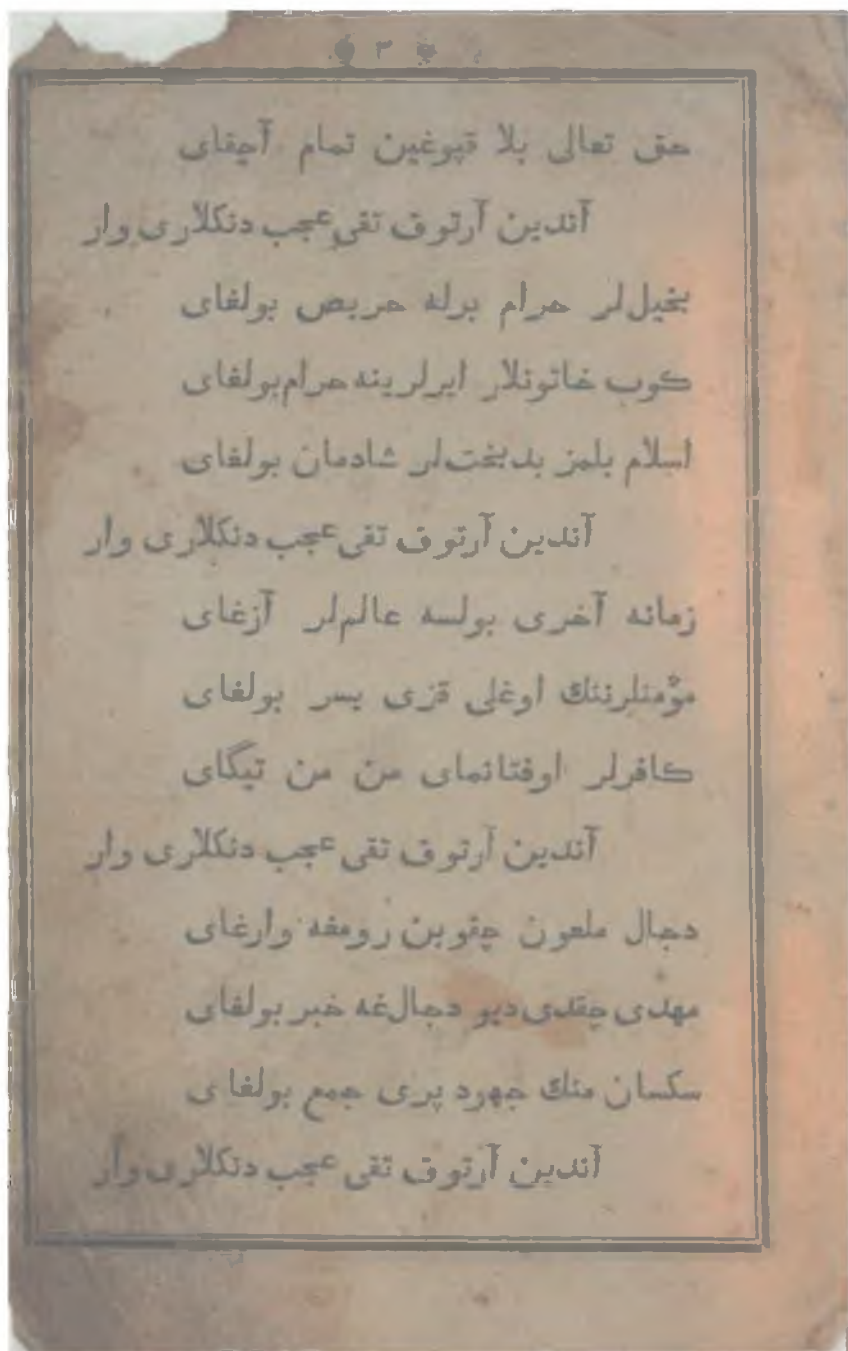 ﴿ ٣ ﴾
حق تعالى بلا قپوغين تمام آچقای
آندين آرتوق تقی عجب دنکلاری وار
بخيل‌لر حرام برله حريص بولغای
کوب خاتونلار ايرلرينه حرام بولغای
اسلام بلمز بدبخت‌لر شادمان بولغای
آندين آرتوق تقی عجب دنکلاری وار
زمانه آخری بولسه عالم‌لر آزغای
مؤمنلرننك اوغلی قزی يسر بولغای
کافرلر اوفتانمای من من تيگای
آندين آرتوق تقی عجب دنکلاری وار
دجال ملعون چقوبن رومغه وارغای
مهدی چقدی ديو دجال‌غه خبر بولغای
سکسان منك جهود پری جمع بولغای
آندين آرتوق تقی عجب دنکلاری وار